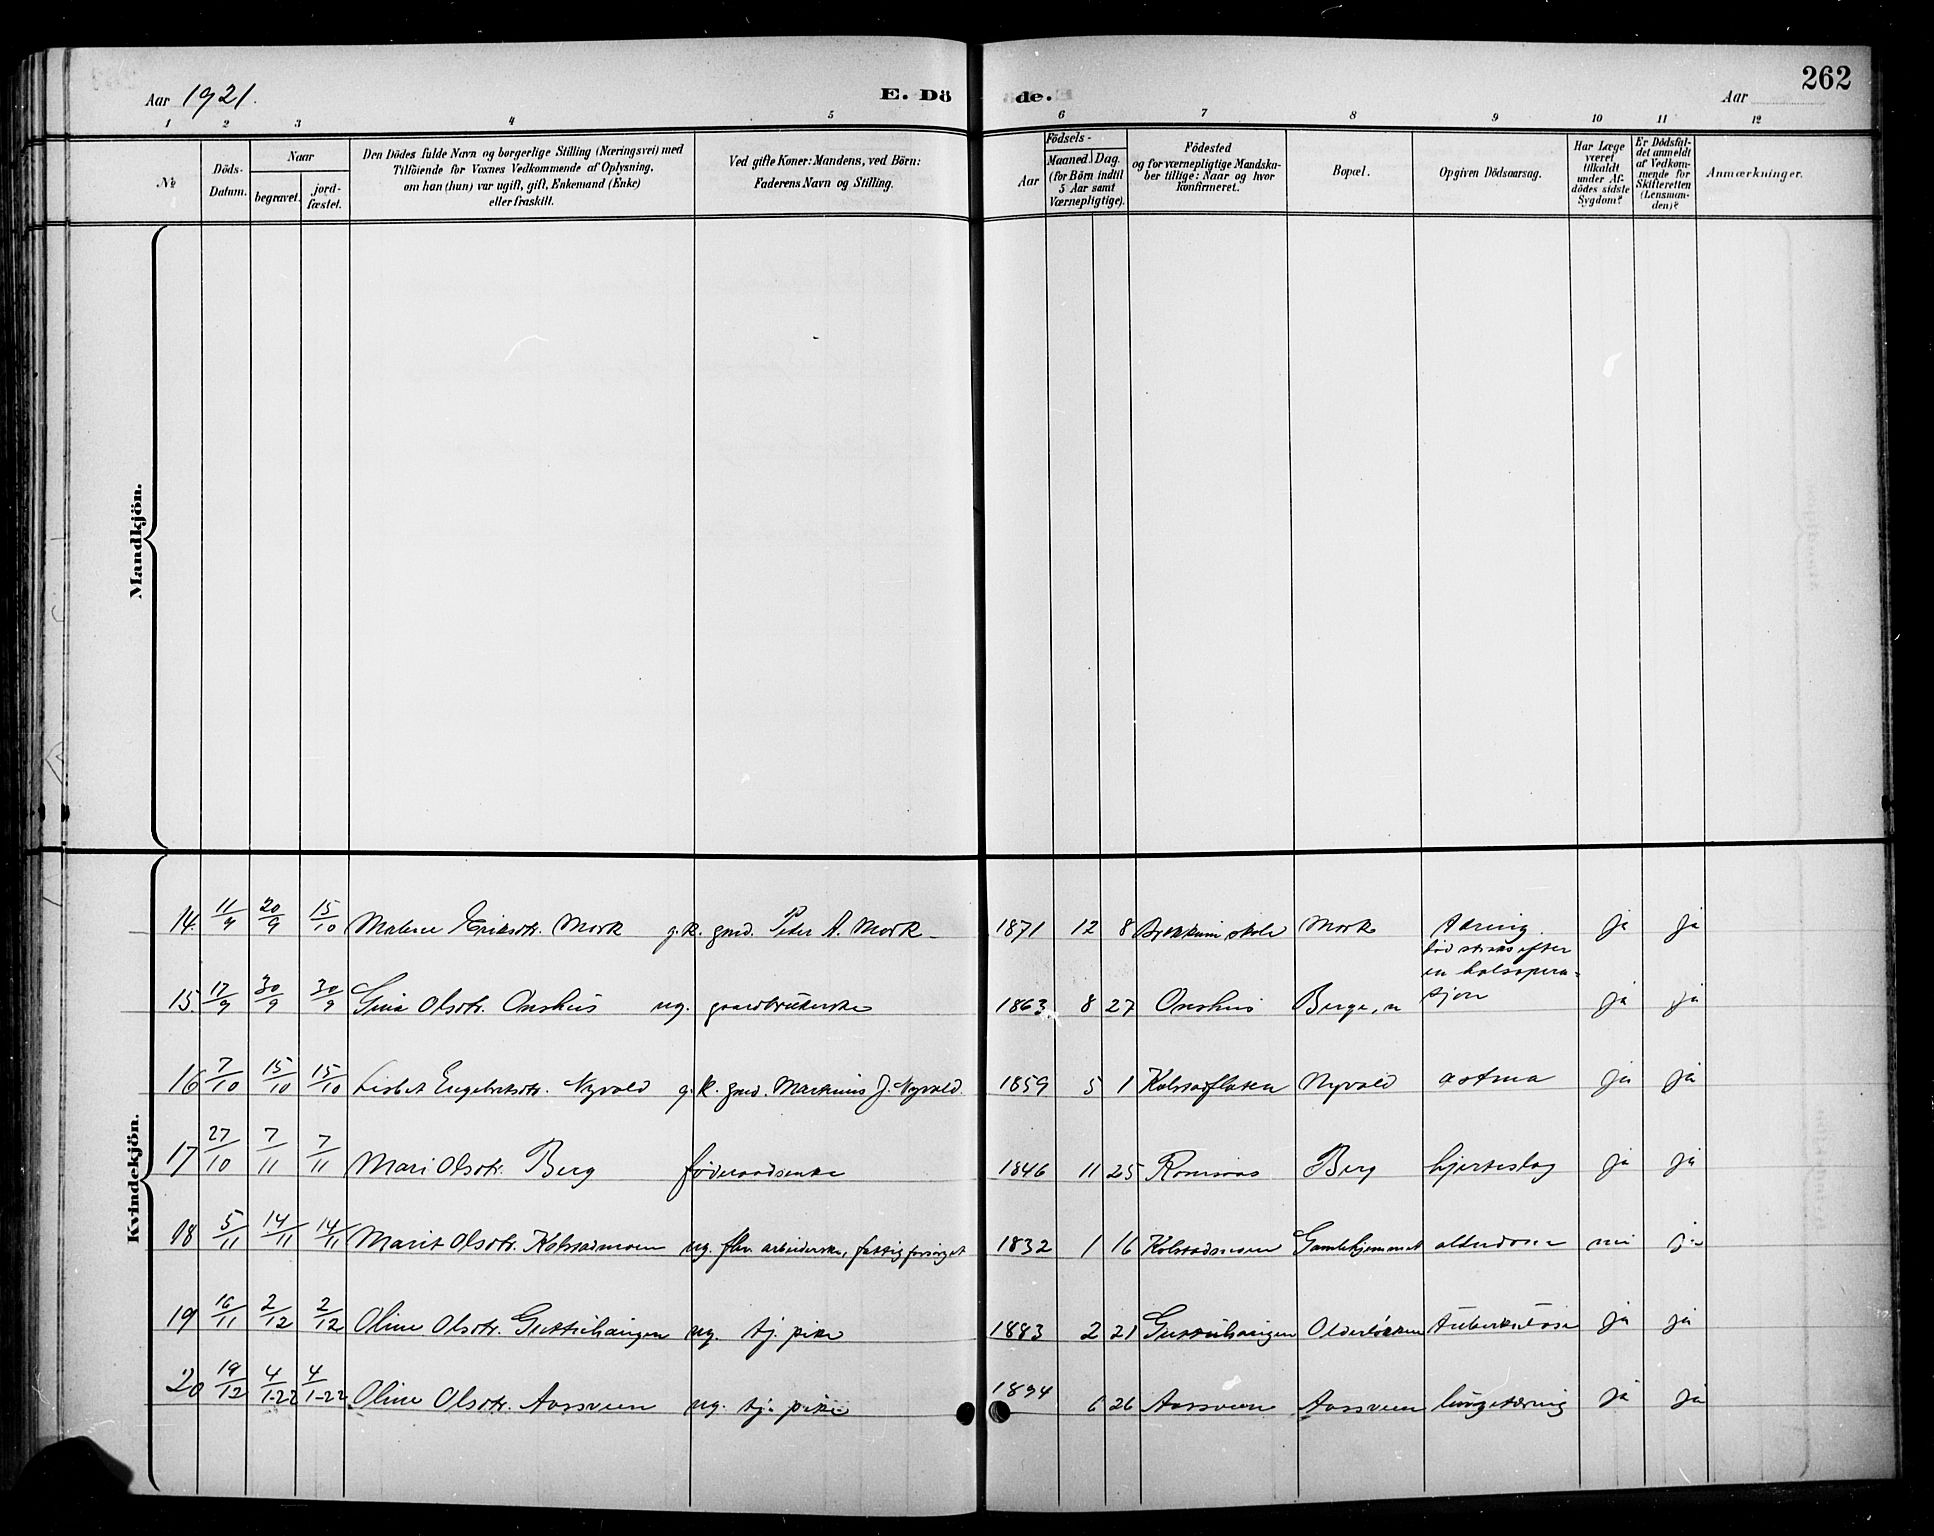 Aar 1921.
E. Dö
de.
262
Aar
1 2 3 4 5 6 7 8 9 10 11 12
№
Döds-
Datum.
Naar
begravet.
jord-
fæstet.
Den Dödes fulde Navn og borgerlige Stilling (Næringsvei) med
Tilföiende for Voxnes Vedkommende af Oplysning,
om han (hun) var ugift, gift, Enkemand (Enke)
eller fraskilt.
Ved gifte Koner: Mandens, ved Börn:
Faderens Navn og Stilling.
Aar
Födsels-
Maaned. Dag.
(for Börn indtil
5 Aar samt
Værnepligtige).
Födested
og for værnepligtige Mandska-
ber tillige: Naar og hvor
konfirmeret.
Bopæl.
Opgiven Dödsaarsag.
Har Læge
været
tilkaldt
under Af-
dödes sidste
Sygdom?
Er Dödsfal-
det anmeldt
af Vedkom-
mende for
Skifteretten
(Lensman-
den)?
Anmærkninger.
Mandkjön.
Kvindekjön.
14. 11/9 20/9 15/10 Eriksdtr. Mork g.k. gmd. Peter A. Mork 1871 12 8 skole Mork tæring ja ja
15. 17/9 30/9 30/9 Olsdtr. Onshus ug. gaardbrukerske 1863 8 27 Onshus Berge, n død straks efter
en halsopera-
sjon ja ja
16 7/10 15/10 15/10 Lisbet Engebretsdtr. Nyvold g.k. gmd. Martinius J. Nyvold. 1859 5 1 Kolstadflaten Nyvold astma ja ja
17 27/10 7/11 7/11 Mari Olsdtr. Berg føderaadsenke 1846 11 25 Romsaas Berg hjerteslag ja ja
18 5/11 14/11 14/11 Marit Olsdtr. Kolstadmoen ug. fhv. arbeiderske, fattigforsørget 1832 1 16 Kolstadmoen Gamlehjemmet alderdom nei ja
19 16/11 2/12 2/12 Oline Olsdtr. ug. tj. pike 1883 2 21 Olderløkken tuberkulose ja ja
20 19/12 4/1-22 4/1-22 Oline Olsdtr. Aassveen ug. tj. pike 1894 6 26 Aassveen Aassveen lungetæring ja ja